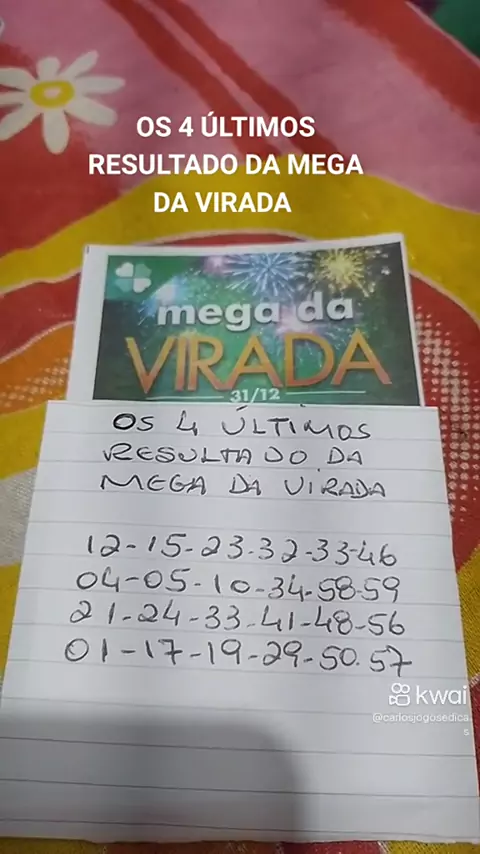 OS 4 ÚLTIMOS
RESULTADO DA MEGA
DA VIRADA
mega da
VIRADA
31/12
OS 4 ÚLTIMOS
RESULTADO DA
MEGA DA VIRADA
12-15-23-32-33-46
04-05-10-34-58-59
21-24-33-41-48-56
01-17-19-29-50-57
kwai
@carlosjogosedica
s